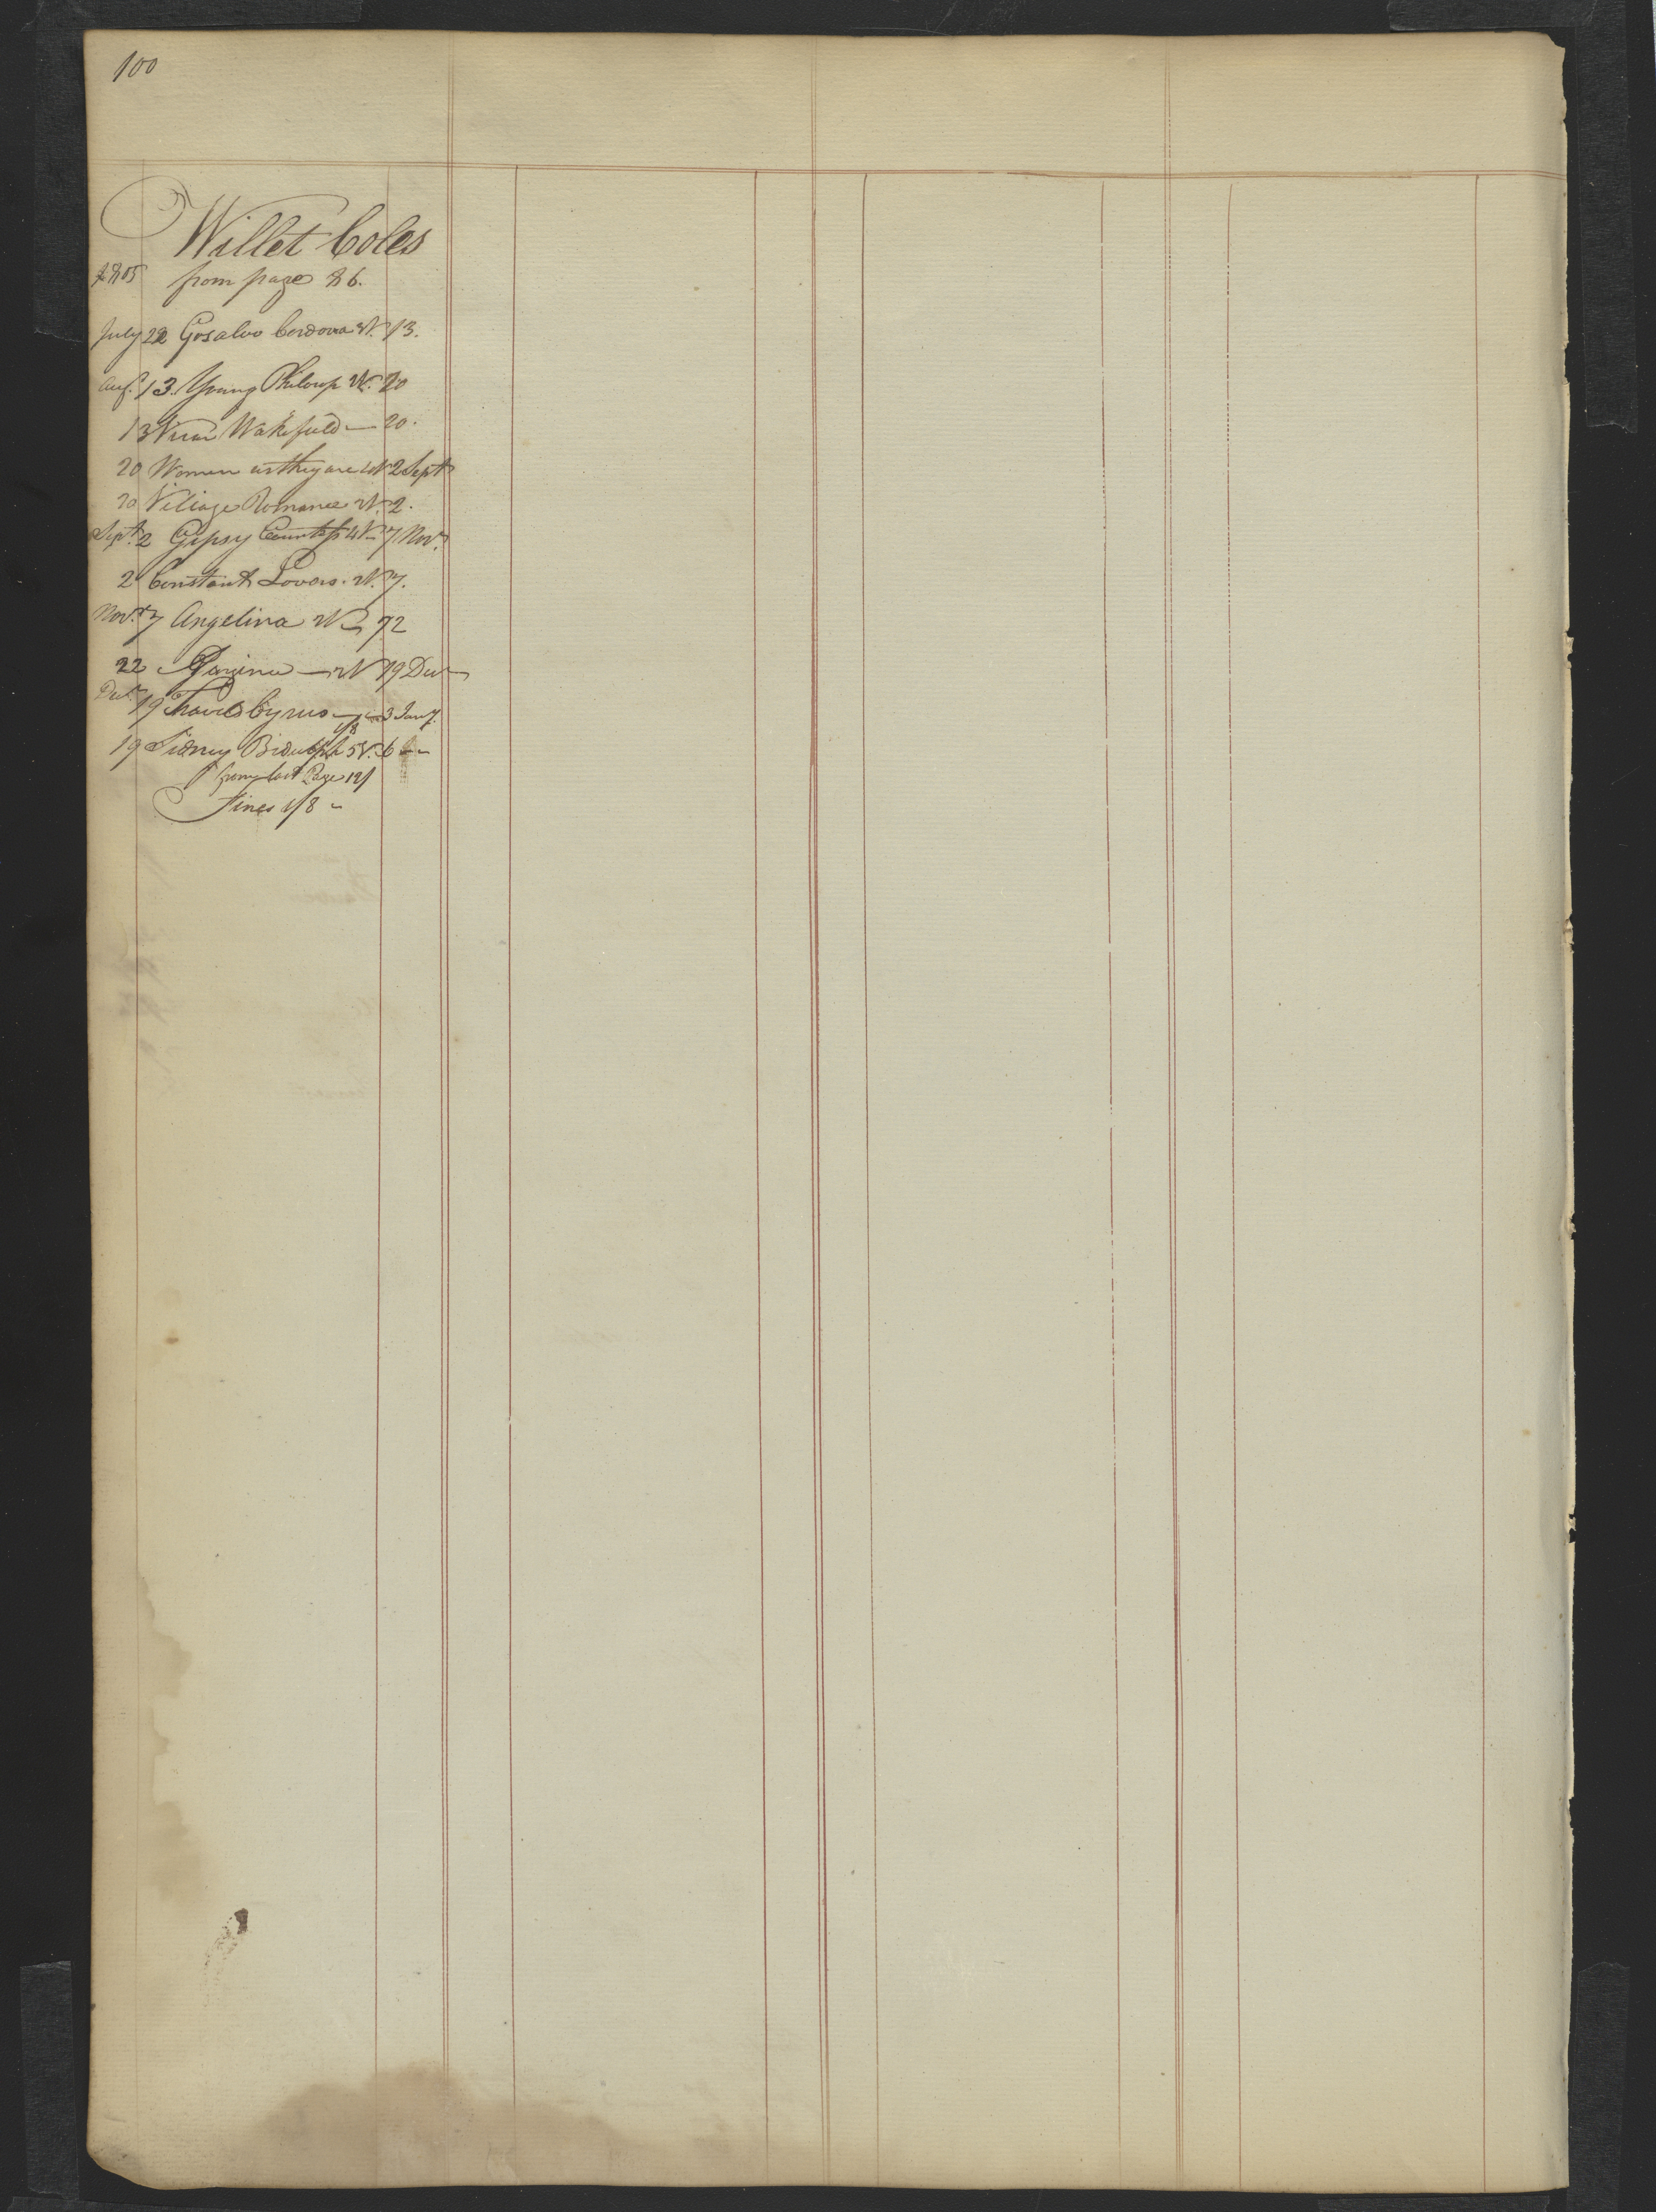 100
Willet Coles
1805 from page 86.
July 22 Gosalvo Cordova 3V. 13.
Aug. 13. Young Philosop V. 20
13 Vicar Wakefield — 20.
20 Women as they are 4V 2 Sept
20 Village Romance 2V. 2.
Sept. 2 Gipsy Countess 4V. 7 Nov.
2 Constant Lovers. 2V. 7.
Nov. 7 Angelina 2V. 22
22 — 2V 19 Decr
Decr. 19 Travels Cyrus — 3 Jany.
1/8
19 Sidney Bidulph 5V. 6
from last Page 12/
Fines 1/8